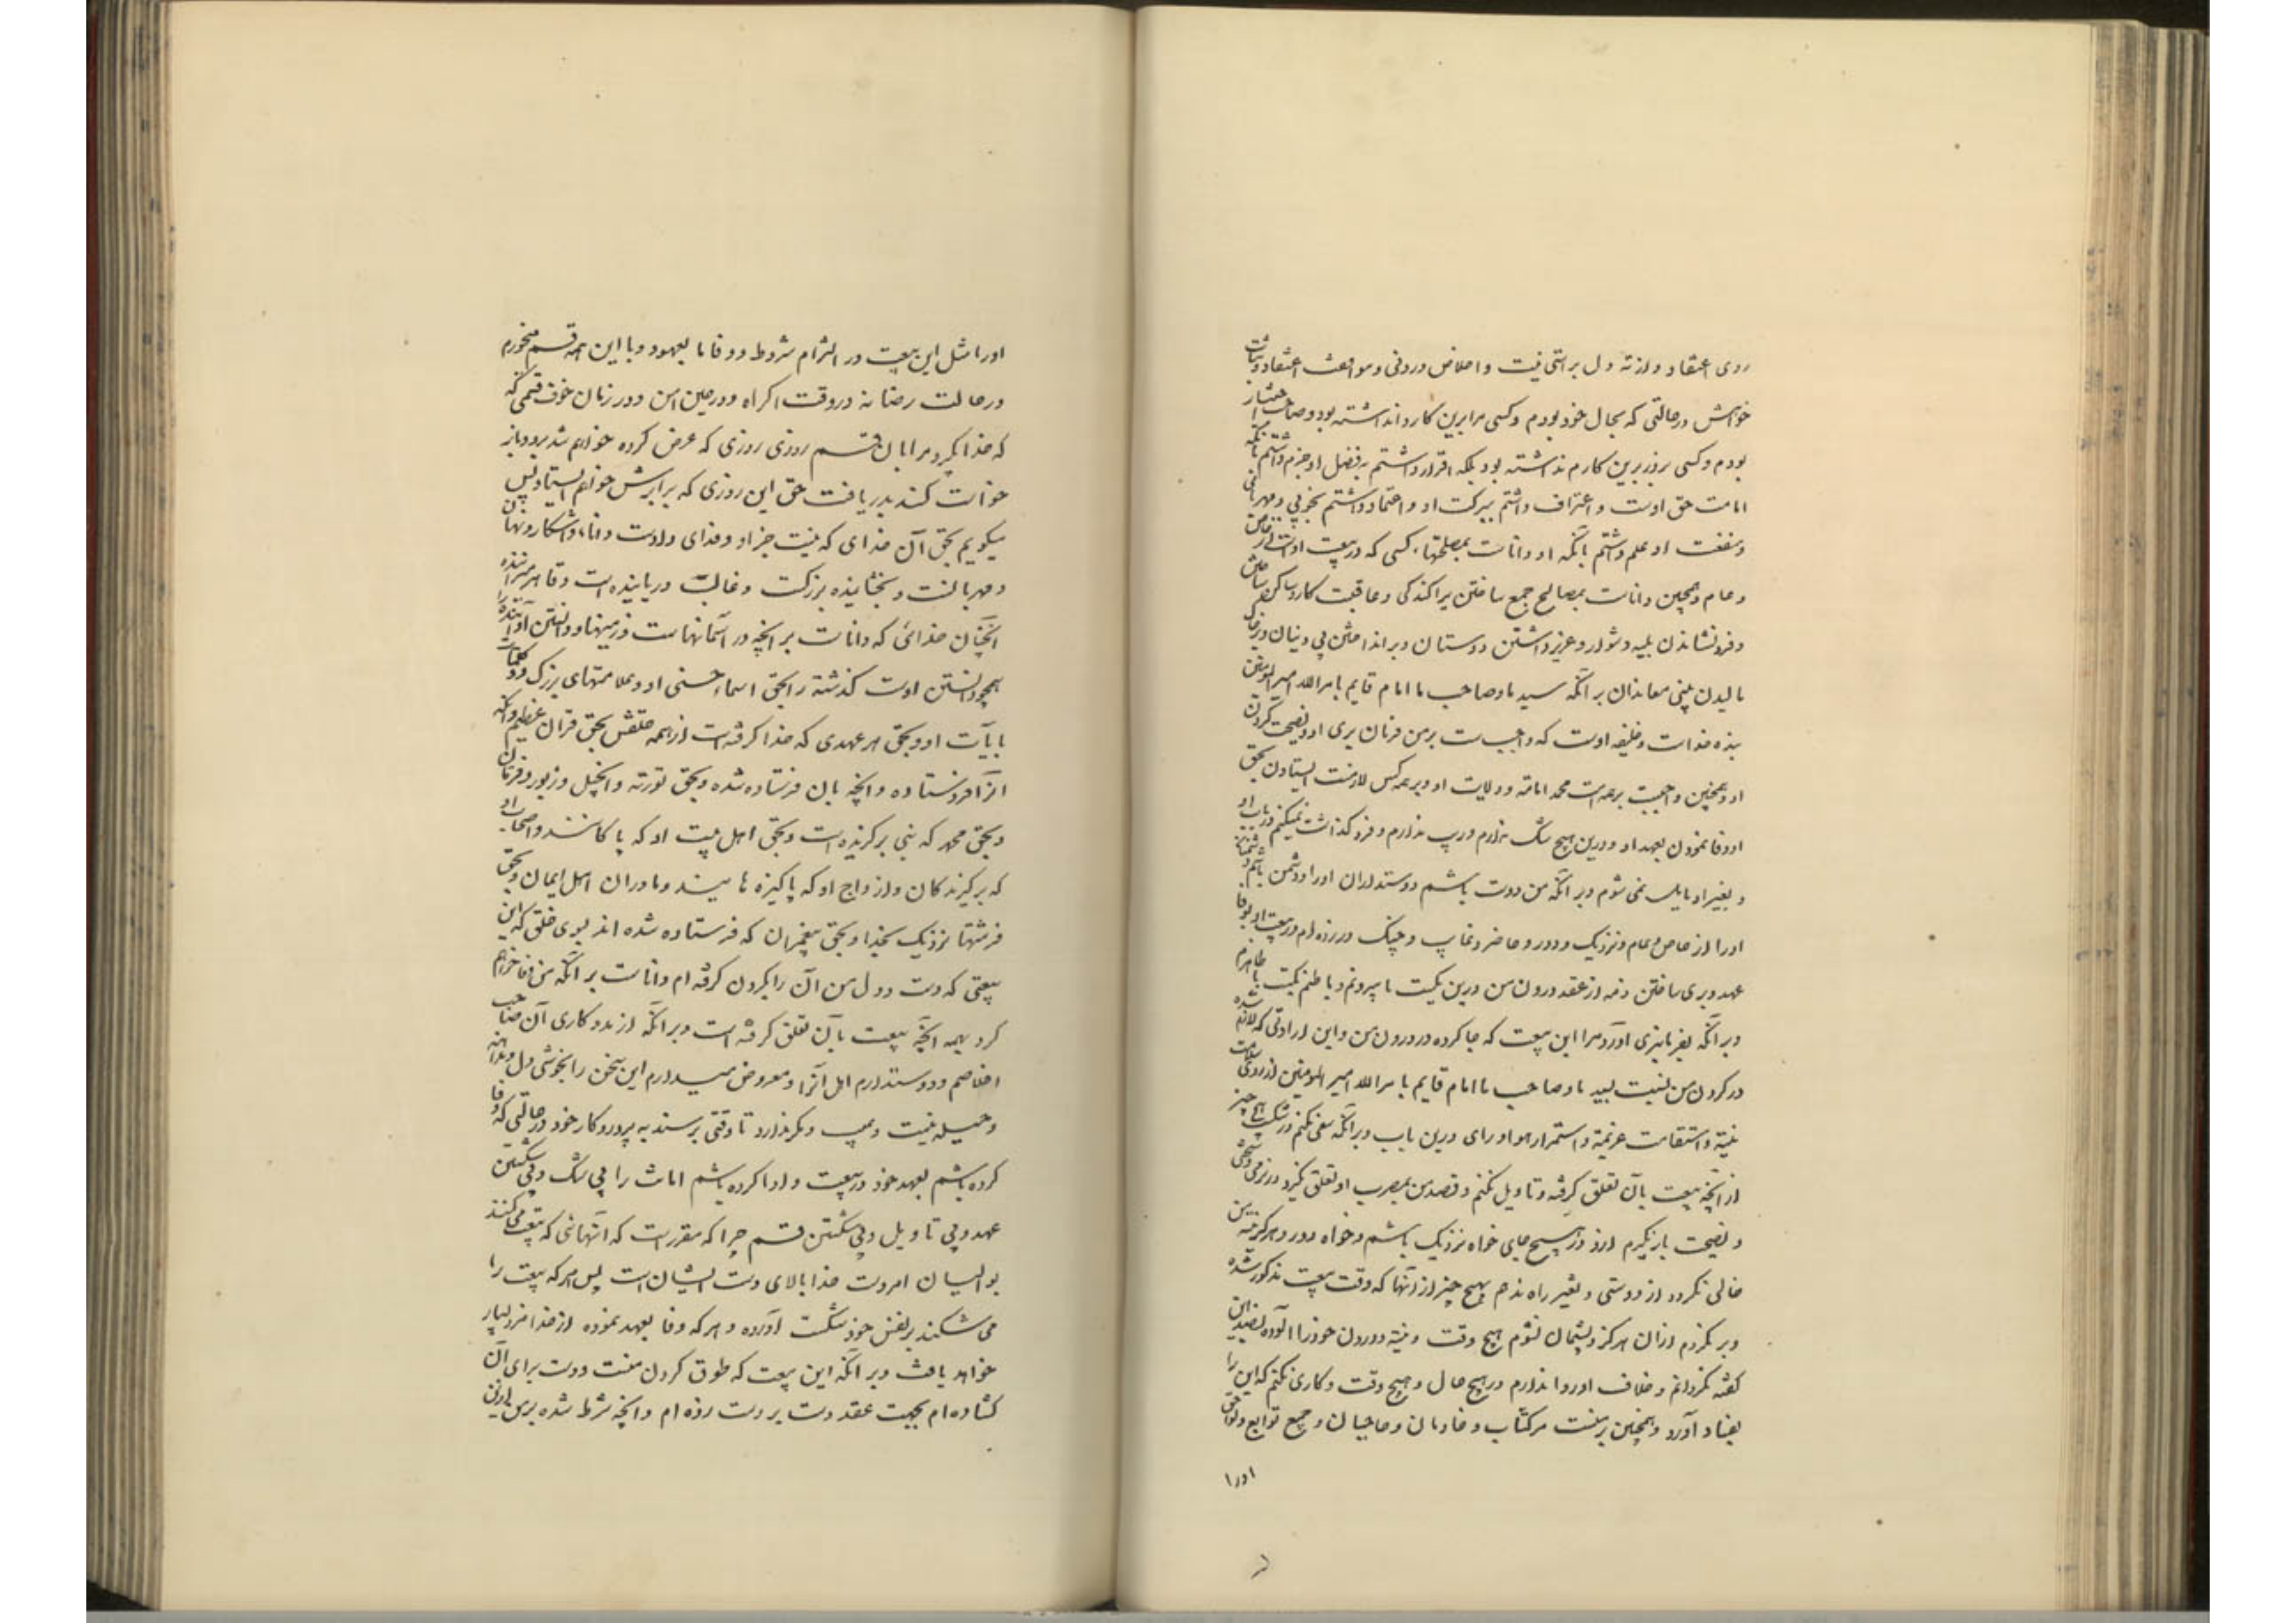 روی اعتقاد و از ته دل براستی نیت و اخلاص درونی و موافقت اعتقاد و ثبات
خواهش در حالتی که بحال خود بودم و کسی مرا برین کار وا نداشته بود و صاحب اختیار
بودم و کسی بزور برین کارم نداشته بود بلکه اقرار داشتم به فضل او جزم داشتم بآنکه
امامت حق اوست و اعتراف داشتم ببرکت او و اعتماد داشتم بخوبی و مهربانی
و شفقت او و علم داشتم بآنکه او داناست بمصلحتهاء کسی که در بیعت اوست از خاص
و عام و همچنین داناست بمصالح جمع ساختن پراکندگی و عاقبت کار و ساکن ساختن
و فرو نشاندن بلیه و شور و عزیز داشتن دوستان و برانداختن بی دینان و بر خاک
مالیدن بینی معاندان بر آنکه سید ما و صاحب ما امام قایم بامرالله امیر المومنین
بنده خداست و خلیفه اوست که واجب است بر من فرمان بری او و نصیحت کردن
او و همچنین واجبست بر همه امت محمد امامة و ولایت او و بر همه کس لازمست ایستادن بحق
او و وفا نمودن بعهد او و درین هیچ شک ندارم و ریب ندارم و فرو گذاشت نمیکنم در باب او
و بغیر او مایل نمی شوم و بر آنکه من دوست باشم دوستداران او را و دشمن باشم دشمنان
او را از خاص و عام و نزدیک و دور و حاضر و غایب و چنگ در زده ام در بیعت او بوفا
عهد و بری ساختن ذمه از عقد درون من درین یکیست با بیرونم و باطنم یکیست با ظاهرم
و بر آنکه بفرمانبری آورد مرا این بیعت که جا کرده در درون من و این ارادتی که لازم شده
در گردن من نسبت بسید ما و صاحب ما امام قایم بامرالله امیر المومنین از روی سلامت
نیة و استقامت عزیمة و استمرار هوا و رای درین باب و بر آنکه سعی نکنم در شکست هیچ چیز
از آنچه بیعت بآن تعلق گرفته و تاویل نکنم و قصد من بمصرب او تعلق نگیرد در نرمی و سختی
و نصیحت باز نگیرم ازو در هیچ جای خواه نزدیک باشم و خواه دور و هرگز نیة من
خالی نگردد از دوستی و تغییر راه ندهم بهیچ چیز از آنها که وقت بیعت مذکور شده
و بر نگردم ازان هرگز و پشیمان نشوم هیچ وقت و نیة و درون خود را آلوده بضد این
گفته نگردانم و خلاف او روا ندارم در هیچ حال و هیچ وقت و کاری نکنم که این را
بفساد آورد و همچنین بر منست مر کتاب و خادمان و حاجبان و جمیع توابع و لواحق
او را
او را مثل این بیعت در التزام شروط و وفا بعهود و با این همه قسم میخورم
در حالت رضا نه در وقت اکراه و در حین امن و در زمان خوف قسمی که
که خدا بگیرد مرا بان قسم روزی روزی که عرض کرده خواهم شد برو و باز
خواست کند بدریافت حق این روزی که برابرش خواهم ایستاد پس
میگویم بحق آن خدای که نیست جز او و خدای و اوست دانای آشکار و نهان
و مهربانست و بخشاینده بزرگست و غالب دریابنده است و قاهر میراننده
آنچنان خدائی که داناست بر انچه در آسمانهاست و زمینها و دانستن او آینده را
همچو دانستن اوست گذشته را بحق اسماء حسنی او و علامتهای بزرگ و کلمات
بآیات او و بحق هر عهدی که خدا گرفته است از همه خلقش بحق قران عظیم و آنکه
آنرا فرو فرستاده و انچه بان فرستاده شده و بحق توریة و انجیل و زبور و فرقان
و بحق محمد که نبی برگزیده است و بحق اهل بیت او که پاکانند و اصحاب او
که برگزیدگان و ازواج او که پاکیزه هایند و مادران اهل ایمان و بحق
فرشتهای نزدیک بخدا و بحق پیغمبران که فرستاده شده اند بسوی خلق که این
بیعتی که دست و دل من آن را بگردن گرفته ام داناست بر آنکه من وفا خواهم
کرد بهمه آنچه بیعت بآن تعلق گرفته است و بر آنکه از مددکاری آن صاحب
اخلاصم و دوستدارم اهل آنرا و معروض میدارم این سخن را بخوشی دل و مداهنه
و حیله نیست و عیب و مکر ندارد تا وقتی برسند به پروردگار خود در حالتی که وفا
کرده باشم بعهد خود در بیعت و ادا کرده باشم امانت را بی شک و بی شکستن
عهد و بی تاویل و بی شکستن قسم چرا که مقرر است که آنهائی که بیعت می کنند
بوالیان امر دست خدا بالای دست ایشان است پس هر که بیعت را
می شکند بر نفس خود شکست آورده و هر که وفا بعهد نموده از خدا مزد بسیار
خواهد یافت و بر آنکه این بیعت که طوق گردن منست و دست برای آن
گشاده ام بجهت عقد دست بر دست زده ام و آنچه شرط شده برمن ازین